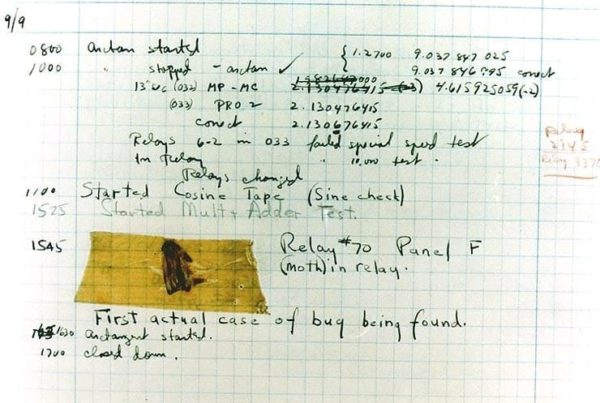 9/9
0800 Antan started
1000 " stopped - antan ✓ { 1.2700 9.037 847 025
9.037 846 995 correct
13"uc (032) MP - MC 2.130476415 (-3) 4.615925059(-2)
(033) PRO 2 2.130476415
correct 2.130676415
Relays 6-2 in 033 failed special speed test
In Relay " 10,000 test.
Relay
2145
Relay 3370
Relays changed
1100 Started Cosine Tape (Sine check)
1525 Started Mult + Adder Test.
1545 Relay #70 Panel F
(moth) in relay.
First actual case of bug being found.
1630 Antangent started.
1700 closed down.